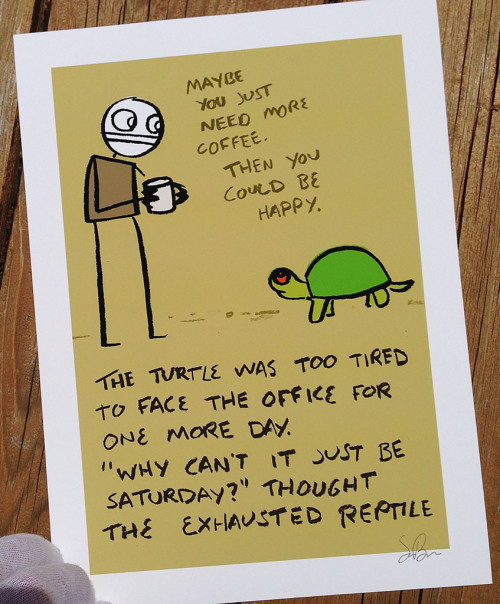 MAYBE
YOU JUST
NEED MORE
COFFEE.
THEN YOU
COULD BE
HAPPY.
THE TURTLE WAS TOO TIRED
TO FACE THE OFFICE FOR
ONE MORE DAY.
"WHY CAN'T IT JUST BE
SATURDAY?" THOUGHT
THE EXHAUSTED REPTILE